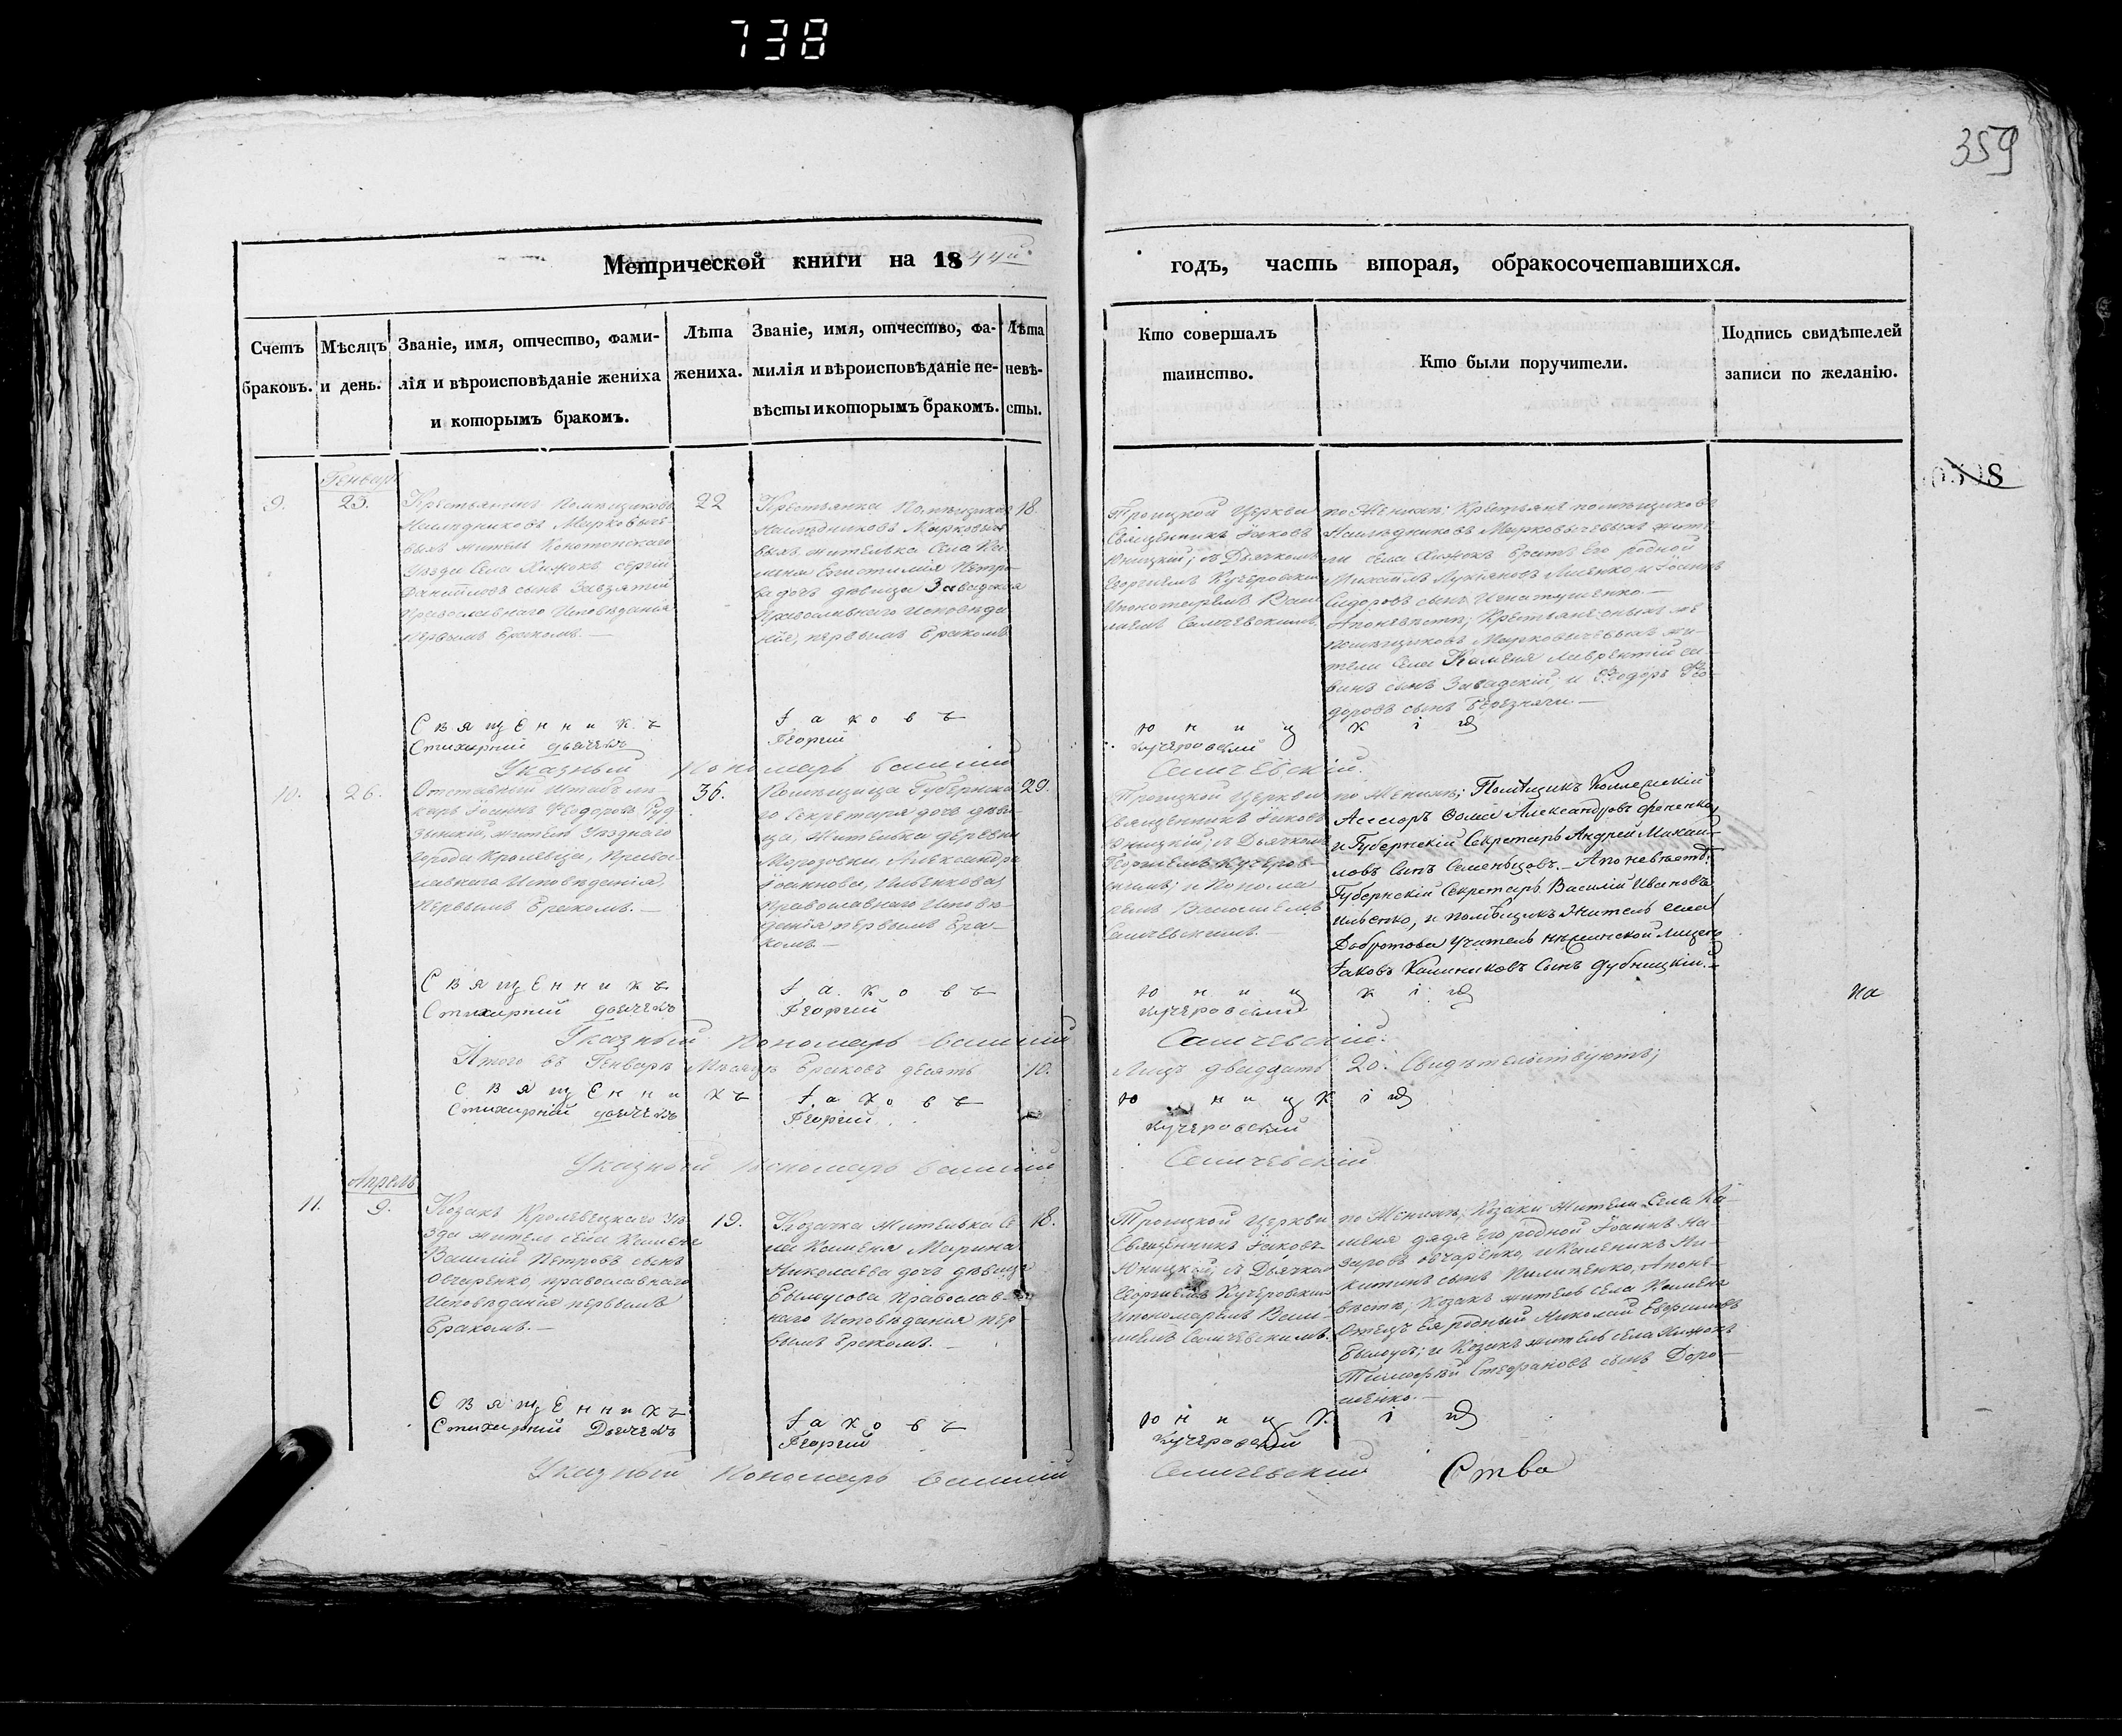 738
359
Метрической книги на 1844й
годъ, часть вторая, обракосочетавшихся.
Счетъ браковъ.
Мѣсяцъ и день.
Званіе, имя, отчество, фами-
лія и вѣроисповѣданіе жениха
и которымъ бракомъ.
Лѣта
жениха.
Званіе, имя, отчество, фа-
милія и вѣроисповѣданіе не-
вѣсты и которымъ бракомъ.
Лѣта
невѣ-
сты.
Кто совершалъ
таинство.
Кто были поручители.
Подпись свидѣтелей
записи по желанію.
Генварь
9.
23.
Крестьянинъ Помѣщиковъ
Наслѣдниковъ Марковиче-
выхъ житель Конотопскаго
Уѣзда Села Хижокъ Сергій
сынъ
Православнаго Исповѣданія
первымъ бракомъ.—
22
Крестьянка Помѣщиковъ
Наслѣдниковъ Маркович
выхъ жителька Села Ка
меня Петро
ва дочь дѣвица Завадская
Православнаго Исповѣда
нія, первымъ бракомъ
18.
Троицкой Церкви
Священникъ Іаковъ
Юницкій; съ Дьячкомъ
Георгіемъ Кучеровскимъ
и Пономаремъ Васи
ліемъ Самчевскимъ
по Женихѣ; Крестьяне помѣщиковъ
Наслѣдниковъ Марковичевыхъ жите
ли села Хижокъ братъ Его родной
Лукіановъ и Іоаннъ
Сидоровъ сынъ Игнатушенко.—
А по невѣстѣ; Крестьяне оныхъ же
помѣщиковъ Марковичевыхъ жи-
тели Села Каменя Лаврентій Са-
винъ сынъ Завадскій, и Феодоръ Фео-
доровъ сынъ
Священникъ Іаковъ Юницкій
Стихирній дьячекъ Георгій Кучеровскій
Указный Пономарь Василій Самчевскій.
10.
26.
Отставный Штабъ лѣ
карь Іоаннъ Феодоровъ Руд
зынскій, житель Уѣзднаго
города Кролевца, Правос
лавнаго Исповѣданія,
первымъ бракомъ.—
36.
Помѣщица Губернска
го Секретаря дочь дѣви
ца, жителька деревни
Морозовки, Александра
Іоаннова, Ильенкова,
православнаго Исповѣ-
данія первымъ бра-
комъ.—
29.
Троицкой Церкви
Священникъ Іаковъ
Юницкій; съ Дьячкомъ
Георгіемъ Кучеров-
скимъ; и Понома
ремъ Василіемъ
Самчевскимъ.—
по Женихѣ; Помѣщикъ Коллежскій
Ассесоръ Фома Александровъ Фененко,
и Губернскій Секретарь Андрей Михаи-
ловъ Сынъ Семенцовъ.— А по невѣстѣ:
Губернскій Секретарь Василій Ивановъ
Ильенко, и помѣщикъ Житель села
Добротова Учитель нѣжинской лицеи
Іаковъ Калиниковъ Сынъ Дубницкій.—
Священникъ Іаковъ Юницкій
на
Стихирній дьячекъ Георгій Кучеровскій
Указный Пономарь Василій Самчевскій.
Итого въ Генварѣ Мѣсяцѣ браковъ десять 10. Лицъ двадцать 20. Свидѣтельствуютъ;
Священникъ Іаковъ Юницкій
Стихирній дьячекъ Георгій Кучеровскій
Указный Пономарь Василій Самчевскій
Апрель
11.
9.
Козакъ Кролевецкаго Уѣ
зда житель села Каменя
Василій Петровъ сынъ
Овчаренко, православнаго
Исповѣданія первымъ
бракомъ.—
19.
Козачка жителька Се
ла Каменя Марина
Николаева дочь дѣвица
Былоусова, Православ-
наго Исповѣданія пер
вымъ бракомъ.—
18.
Троицкой Церкви
Священникъ Іаковъ
Юницкій, съ Дьячком
Георгіемъ Кучеровским
и Пономаремъ Васи-
ліемъ Самчевскимъ.
по Женихѣ; Козаки Жители Села Ка-
меня дядя его родной Іоаннъ На-
заровъ Овчаренко, и Калиникъ Ни-
китинъ сынъ Пилипенко, А по не-
вѣстѣ; Козакъ житель села Каменя
Отецъ Ея родный Николай
Былоусъ; и Козакъ житель села Хижокъ
Тимофей Стефановъ сынъ Доро-
шенко.—
Священникъ Іаковъ Юницкій
Стихирній Дьячекъ Георгій Кучеровскій
Указный Пономарь Василій Самчевскій
Ства